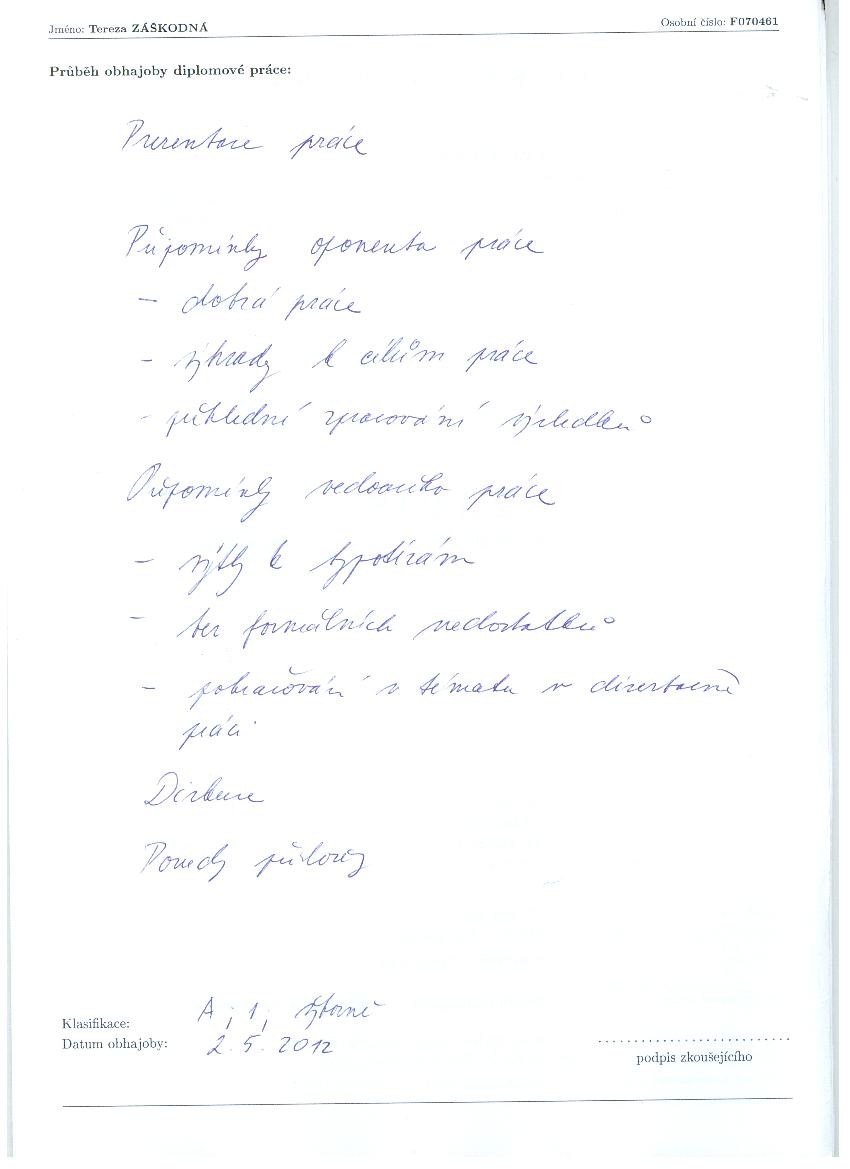 Jméno: Tereza ZÁŠKODNÁ
Osobní číslo: F070461
Průběh obhajoby diplomové práce:
Prezentace práce
Připomínky oponenta práce
- dobrá práce
- výhrady k cílům práce
- přehledné zpracování výsledků
Připomínky vedoucího práce
- výtky k hypotézám
- bez formálních nedostatků
- pokračování v tématu v disertační
práci
Diskuse
Posudky přiloženy
Klasifikace: A ; 1 ; výborně
Datum obhajoby: 2.5.2012
podpis zkoušejícího